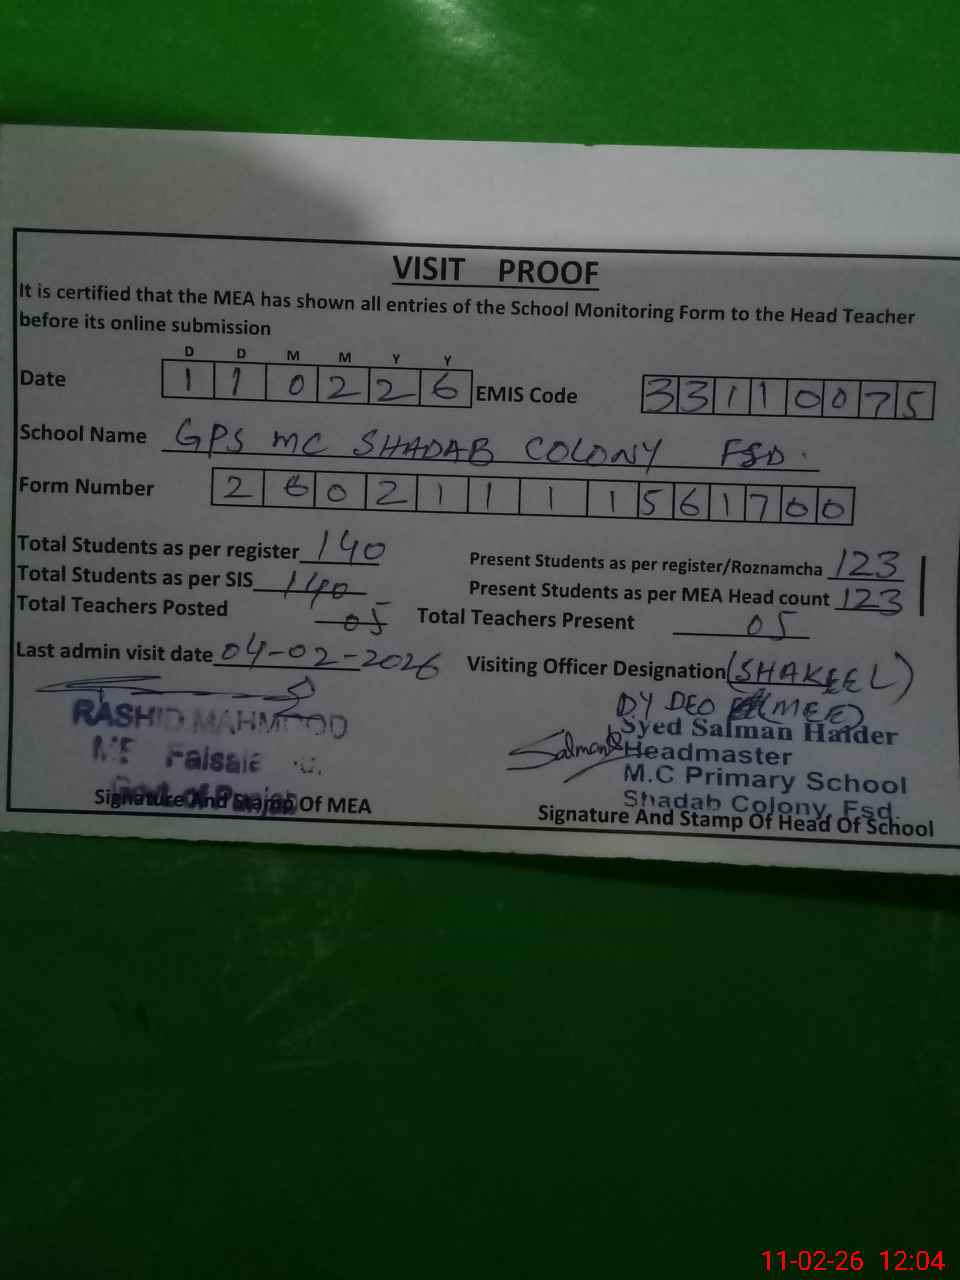 VISIT PROOF
It is certified that the MEA has shown all entries of the School Monitoring Form to the Head Teacher
before its online submission
D D M M Y Y
Date 1 1 0 2 2 6 EMIS Code 3 3 1 1 0 0 7 5
School Name GPS MC SHADAB COLONY FSD.
Form Number 2 6 0 2 1 1 1 1 5 6 1 7 0 0
Total Students as per register 140 Present Students as per register/Roznamcha 123
Total Students as per SIS 140 Present Students as per MEA Head count 123
Total Teachers Posted 05 Total Teachers Present 05
Last admin visit date 04-02-2026 Visiting Officer Designation (SHAKEEL)
DY DEO (MEE)
RASHID MAHMOOD
Syed Salman Haider
Salman Headmaster
M.C Primary School
Govt. of Punjab
Shadab Colony, Fsd.
Signature And Stamp Of MEA Signature And Stamp Of Head Of School
11-02-26 12:04